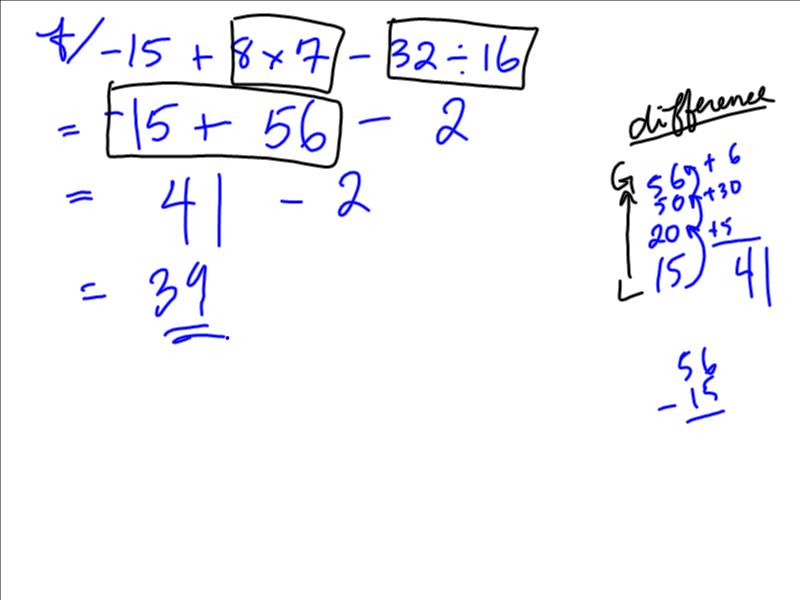 f/ -15 + 8 × 7 - 32 ÷ 16
= -15 + 56 - 2
= 41 - 2
= 39
difference
G 56 + 6
50 +30
20 +5
L 15 41
56
- 15